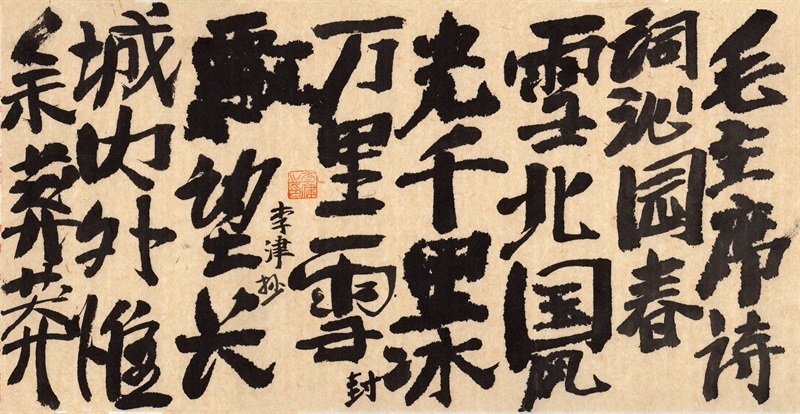 毛主席诗
词沁园春
雪北国风
光千里冰
封
万里雪
飘望长
城内外惟
余莽莽
李津抄